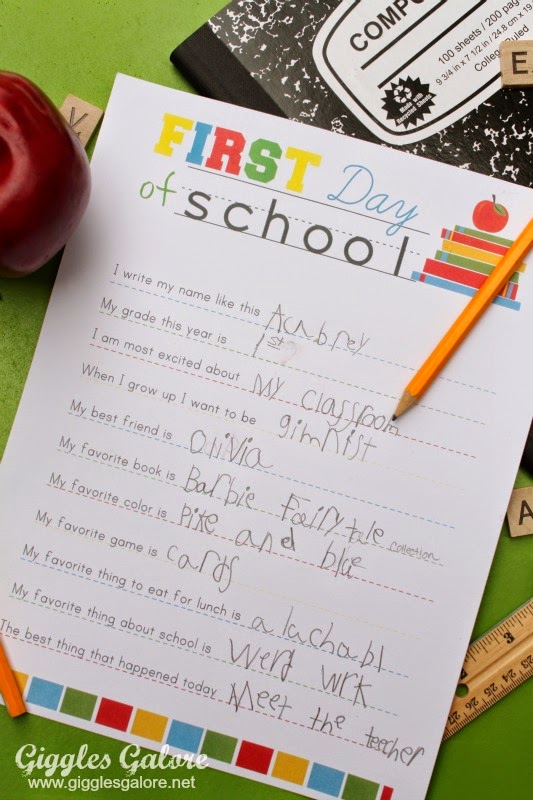 COMPO
100 sheets / 200 pag
9 3/4 in x 7 1/2 in / 24.8 cm x 19.
College Ruled
Made with
Recycled Sheets
E
K
FIRST Day
of school
I write my name like this Aubrey
My grade this year is 1st
I am most excited about My classroom
When I grow up I want to be gimnist
My best friend is Olivia
My favorite book is Barbie Fairytale collection
My favorite color is Pike and blue
My favorite game is cards
My favorite thing to eat for lunch is a lachabl
My favorite thing about school is werd wrk
The best thing that happened today Meet the teacher
A
24 25 26 27 28
Giggles Galore
www.gigglesgalore.net